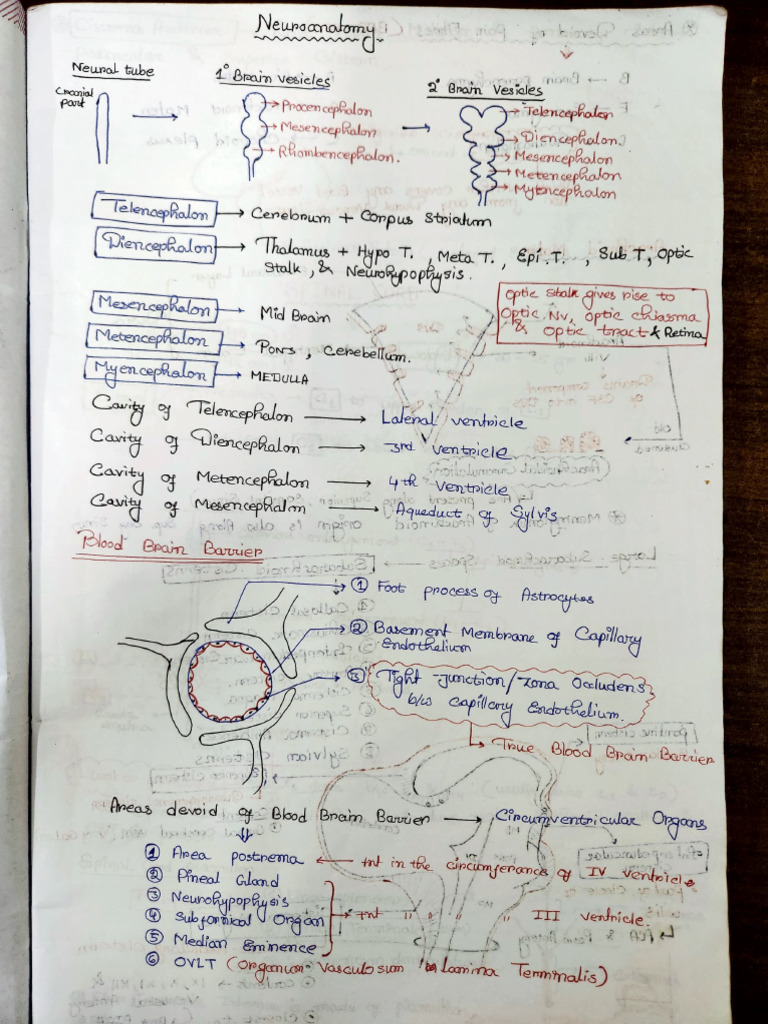 Neuroanatomy
Neural tube
1° Brain vesicles
2° Brain Vesicles
Cranial part
Procencephalon
Mesencephalon
Rhombencephalon.
Telencephalon
Diencephalon
Mesencephalon
Metencephalon
Myencephalon
Telencephalon → Cerebrum + Corpus Striatum
Diencephalon → Thalamus + Hypo T. , Meta T. , Epi. T. , Sub T, Optic
Stalk , & Neurohypophysis.
Mesencephalon → Mid Brain
optic stalk gives rise to
Optic Nv, optic chiasma
& optic tract & Retina
Metencephalon → PONS , Cerebellum.
Myencephalon → MEDULLA
Cavity of Telencephalon → Lateral ventricle
Cavity of Diencephalon → 3rd ventricle
Cavity of Metencephalon → 4th ventricle
Cavity of Mesencephalm → Aqueduct of Sylvis
Blood Brain Barrier
① Foot process of Astrocytes
② Basement Membrane of Capillary
Endothelium
③ Tight Junction/Zona Occludens
b/w capillary Endothelium.
True Blood Brain Barrier
Areas devoid of Blood Brain Barrier → Circumventricular Organs
① Area postrema ← tnt in the circumferance of IV ventricle
② Pineal Gland
③ Neurohypophysis
④ Subfornical Organ → tnt " " " III ventricle
⑤ Median Eminence
⑥ OVLT (Organum vasculosum Lamina Terminalis)